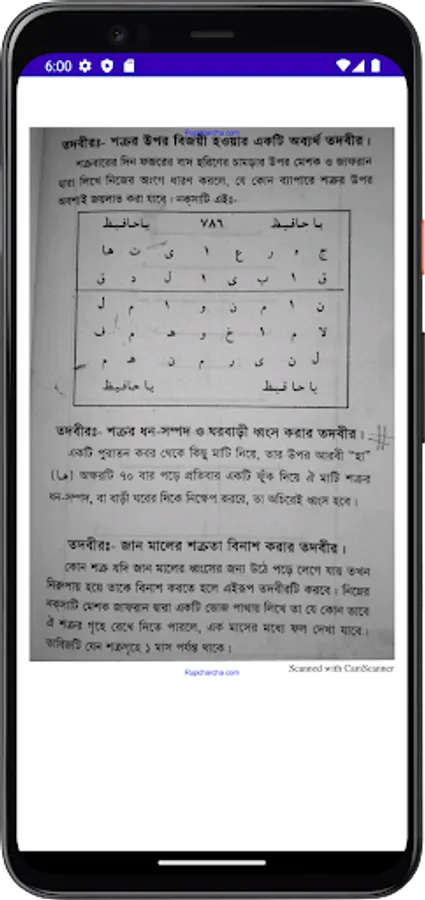 6:00
Rupcharcha.com
তদবীরঃ- শত্রুর উপর বিজয়ী হওয়ার একটি অব্যর্থ তদবীর।
শুক্রবারের দিন ফজরের বাদ হরিণের চামড়ার উপর মেশক ও জাফরান
দ্বারা লিখে নিজের অংগে ধারণ করলে, যে কোন ব্যাপারে শত্রুর উপর
অবশ্যই জয়লাভ করা যাবে। নক্সাটি এইঃ-
يا حافيظ ٧٨٦ يا حافيظ
ج و ر ع ا ى ت ها
ق ا ب ى ا ل د ق
ن ا م ن و ا م ل
لا م ا خ و هـ م ف
ل ن ى ر م ن هـ م
يا حافيظ يا حافيظ
তদবীরঃ- শত্রুর ধন-সম্পদ ও ঘরবাড়ী ধ্বংস করার তদবীর।
একটি পুরাতন কবর থেকে কিছু মাটি নিয়ে, তার উপর আরবী "হা"
(ها) অক্ষরটি ৭০ বার পড়ে প্রতিবার একটি ফুঁক দিয়ে ঐ মাটি শত্রুর
ধন-সম্পদ, বা বাড়ী ঘরের দিকে নিক্ষেপ করবে, তা অচিরেই ধ্বংস হবে।
তদবীরঃ- জান মালের শত্রুতা বিনাশ করার তদবীর।
কোন শত্রু যদি জান মালের ধ্বংসের জন্য উঠে পড়ে লেগে যায় তখন
নিরুপায় হয়ে তাকে বিনাশ করতে হলে এইরূপ তদবীরটি করবে। নিম্নের
নক্সাটি মেশক জাফরান দ্বারা একটি ভোজ পাখায় লিখে তা যে কোন ভাবে
ঐ শত্রুর গৃহে রেখে দিতে পারলে, এক মাসের মধ্যে ফল দেখা যাবে।
তাবিজটি যেন শত্রুগৃহে ১ মাস পর্যন্ত থাকে।
Scanned with CamScanner
Rupcharcha.com